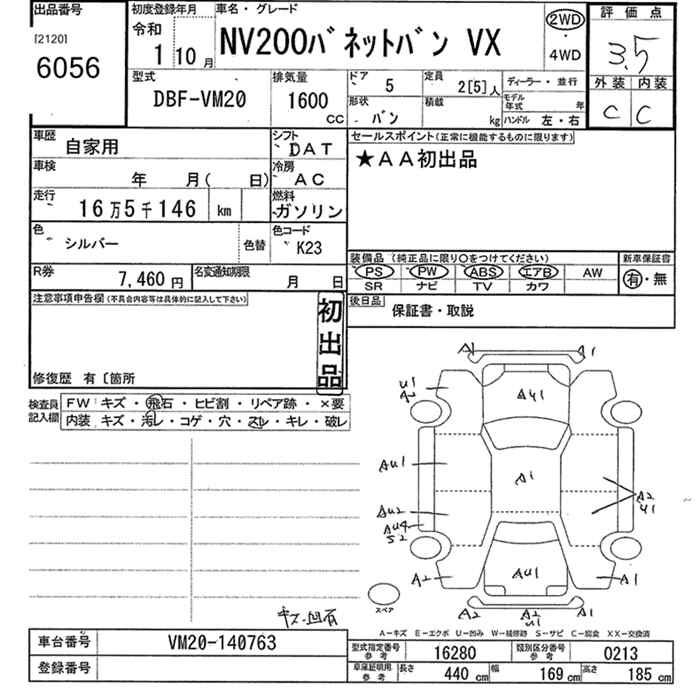 出品番号 初度登録年月 車名・グレード 評価点
[2120] 令和 NV200バネットバン VX 2WD 3.5
6056 1 10月 ・
4WD
型式 排気量 ドア 5 定員 2[5]人 ディーラー・並行 外装 内装
DBF-VM20 1600 cc 形状 バン 積載 kg モデル年式 年 C C
ハンドル 左・右
車歴 自家用 シフト DAT セールスポイント(正常に機能するものに限ります)
車検 年 月( 日) 冷房 AC ★AA初出品
走行 16万5千146 km 燃料 ガソリン
色 シルバー 色替 色コード K23
装備品(純正品に限り○をつけてください) 新車保証書
R券 7,460円 名変通知期限 月 日 PS PW ABS エアB AW 有・無
SR ナビ TV カワ
注意事項申告欄(不具合内容等は具体的に記入して下さい) 初出品 後日品 保証書・取説
修復歴 有〔箇所
検査員記入欄 FW キズ・飛石・ヒビ割・リペア跡・×要
内装 キズ・汚レ・コゲ・穴・スレ・キレ・破レ
A1 A1
U1
A2
AU1
AU1
A1
A2
U1
AU2
AU4
S2
A2 AU1 A1
スペア
A2 A2 A2
U1
キズ凹有
A-キズ E-エクボ U-凹み W-補修跡 S-サビ C-腐食 XX-交換済
車台番号 VM20-140763 型式指定番号 参考 16280 類別区分番号 参考 0213
登録番号 車庫証明用 参考 長さ 440 cm 幅 169 cm 高さ 185 cm